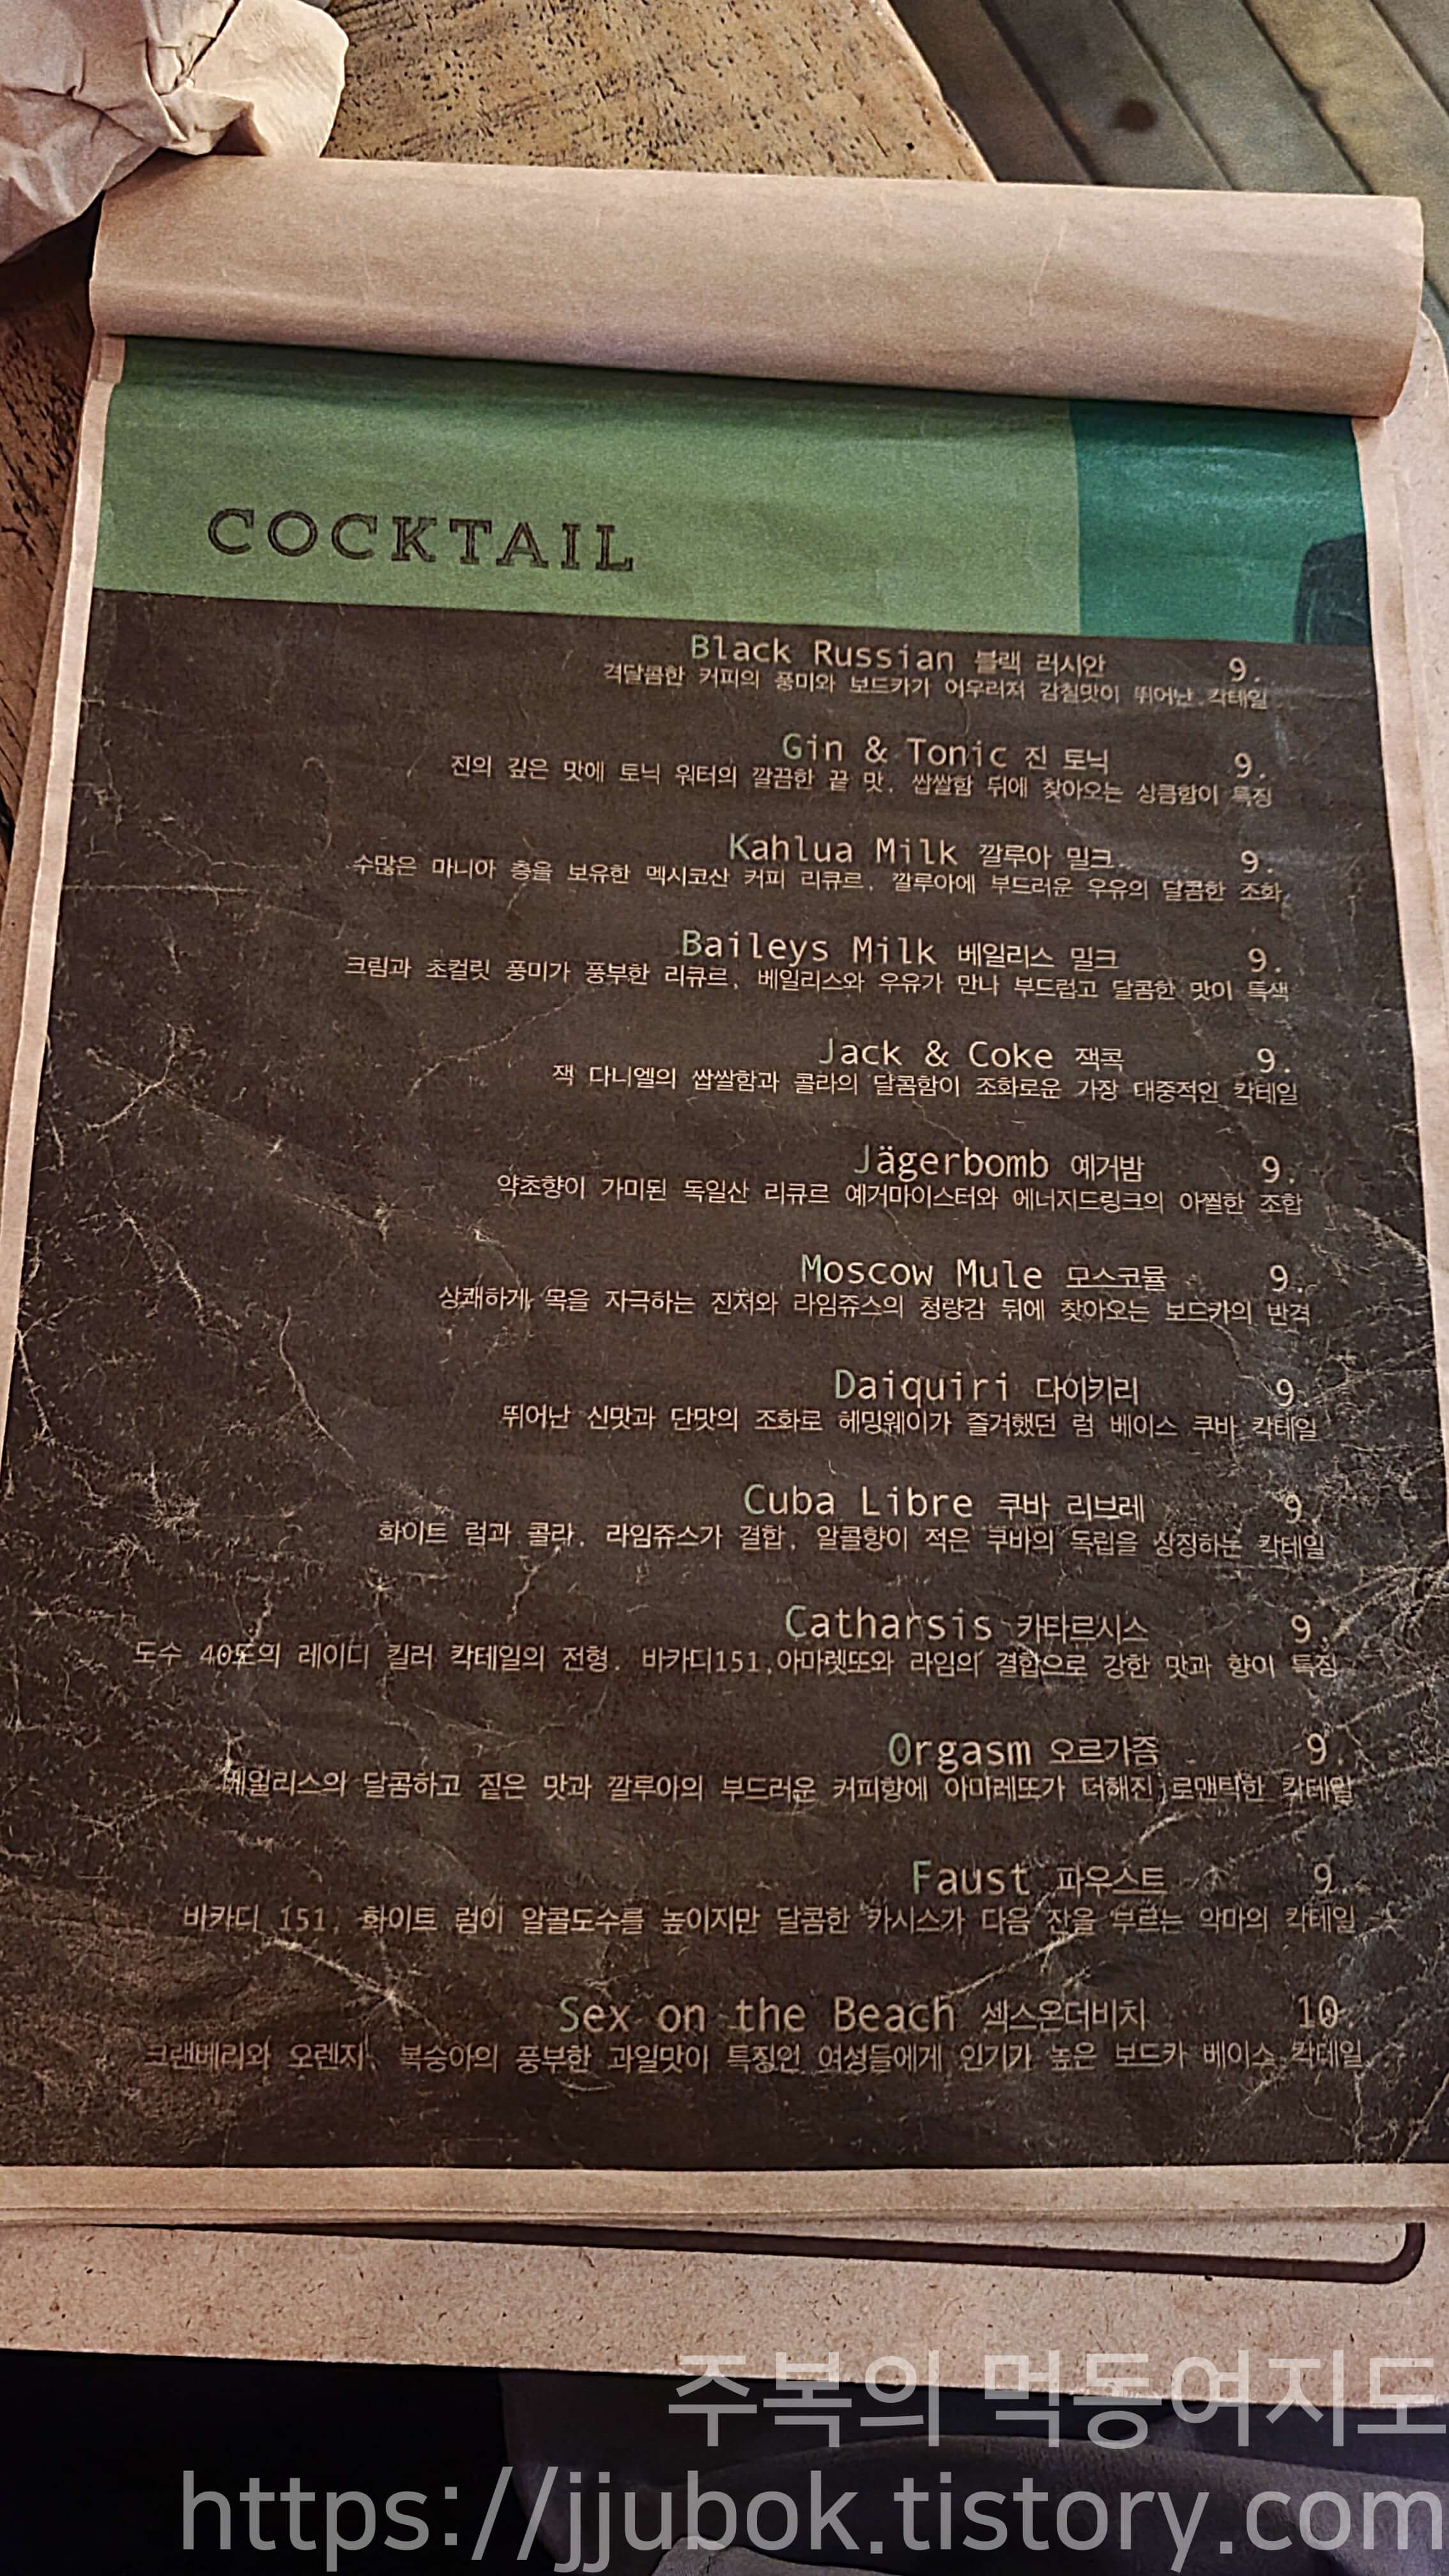 COCKTAIL
Black Russian 블랙 러시안 9.
격달콤한 커피의 풍미와 보드카가 어우러져 감칠맛이 뛰어난 칵테일
Gin & Tonic 진 토닉 9.
진의 깊은 맛에 토닉 워터의 깔끔한 끝 맛, 쌉쌀함 뒤에 찾아오는 상큼함이 특징
Kahlua Milk 깔루아 밀크 9.
수많은 마니아 층을 보유한 멕시코산 커피 리큐르, 깔루아에 부드러운 우유의 달콤한 조화
Baileys Milk 베일리스 밀크 9.
크림과 초컬릿 풍미가 풍부한 리큐르, 베일리스와 우유가 만나 부드럽고 달콤한 맛이 특색
Jack & Coke 잭콕 9.
잭 다니엘의 쌉쌀함과 콜라의 달콤함이 조화로운 가장 대중적인 칵테일
Jägerbomb 예거밤 9.
약초향이 가미된 독일산 리큐르 예거마이스터와 에너지드링크의 아찔한 조합
Moscow Mule 모스코뮬 9.
상쾌하게 목을 자극하는 진저와 라임쥬스의 청량감 뒤에 찾아오는 보드카의 반격
Daiquiri 다이키리 9.
뛰어난 신맛과 단맛의 조화로 헤밍웨이가 즐겨했던 럼 베이스 쿠바 칵테일
Cuba Libre 쿠바 리브레 9.
화이트 럼과 콜라, 라임쥬스가 결합, 알콜향이 적은 쿠바의 독립을 상징하는 칵테일
Catharsis 카타르시스 9.
도수 40도의 레이디 킬러 칵테일의 전형. 바카디151,아마렛또와 라임의 결합으로 강한 맛과 향이 특징
Orgasm 오르가즘 9.
베일리스의 달콤하고 짙은 맛과 깔루아의 부드러운 커피향에 아마레또가 더해진 로맨틱한 칵테일
Faust 파우스트 9.
바카디 151, 화이트 럼이 알콜도수를 높이지만 달콤한 카시스가 다음 잔을 부르는 악마의 칵테일
Sex on the Beach 섹스온더비치 10.
크랜베리와 오렌지, 복숭아의 풍부한 과일맛이 특징인 여성들에게 인기가 높은 보드카 베이스 칵테일
주복의 먹동여지도
https://jjubok.tistory.com